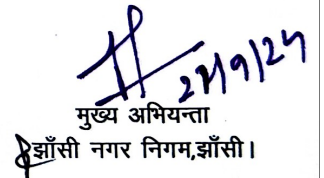 27/9/24
मुख्य अभियन्ता
झाँसी नगर निगम,झाँसी।